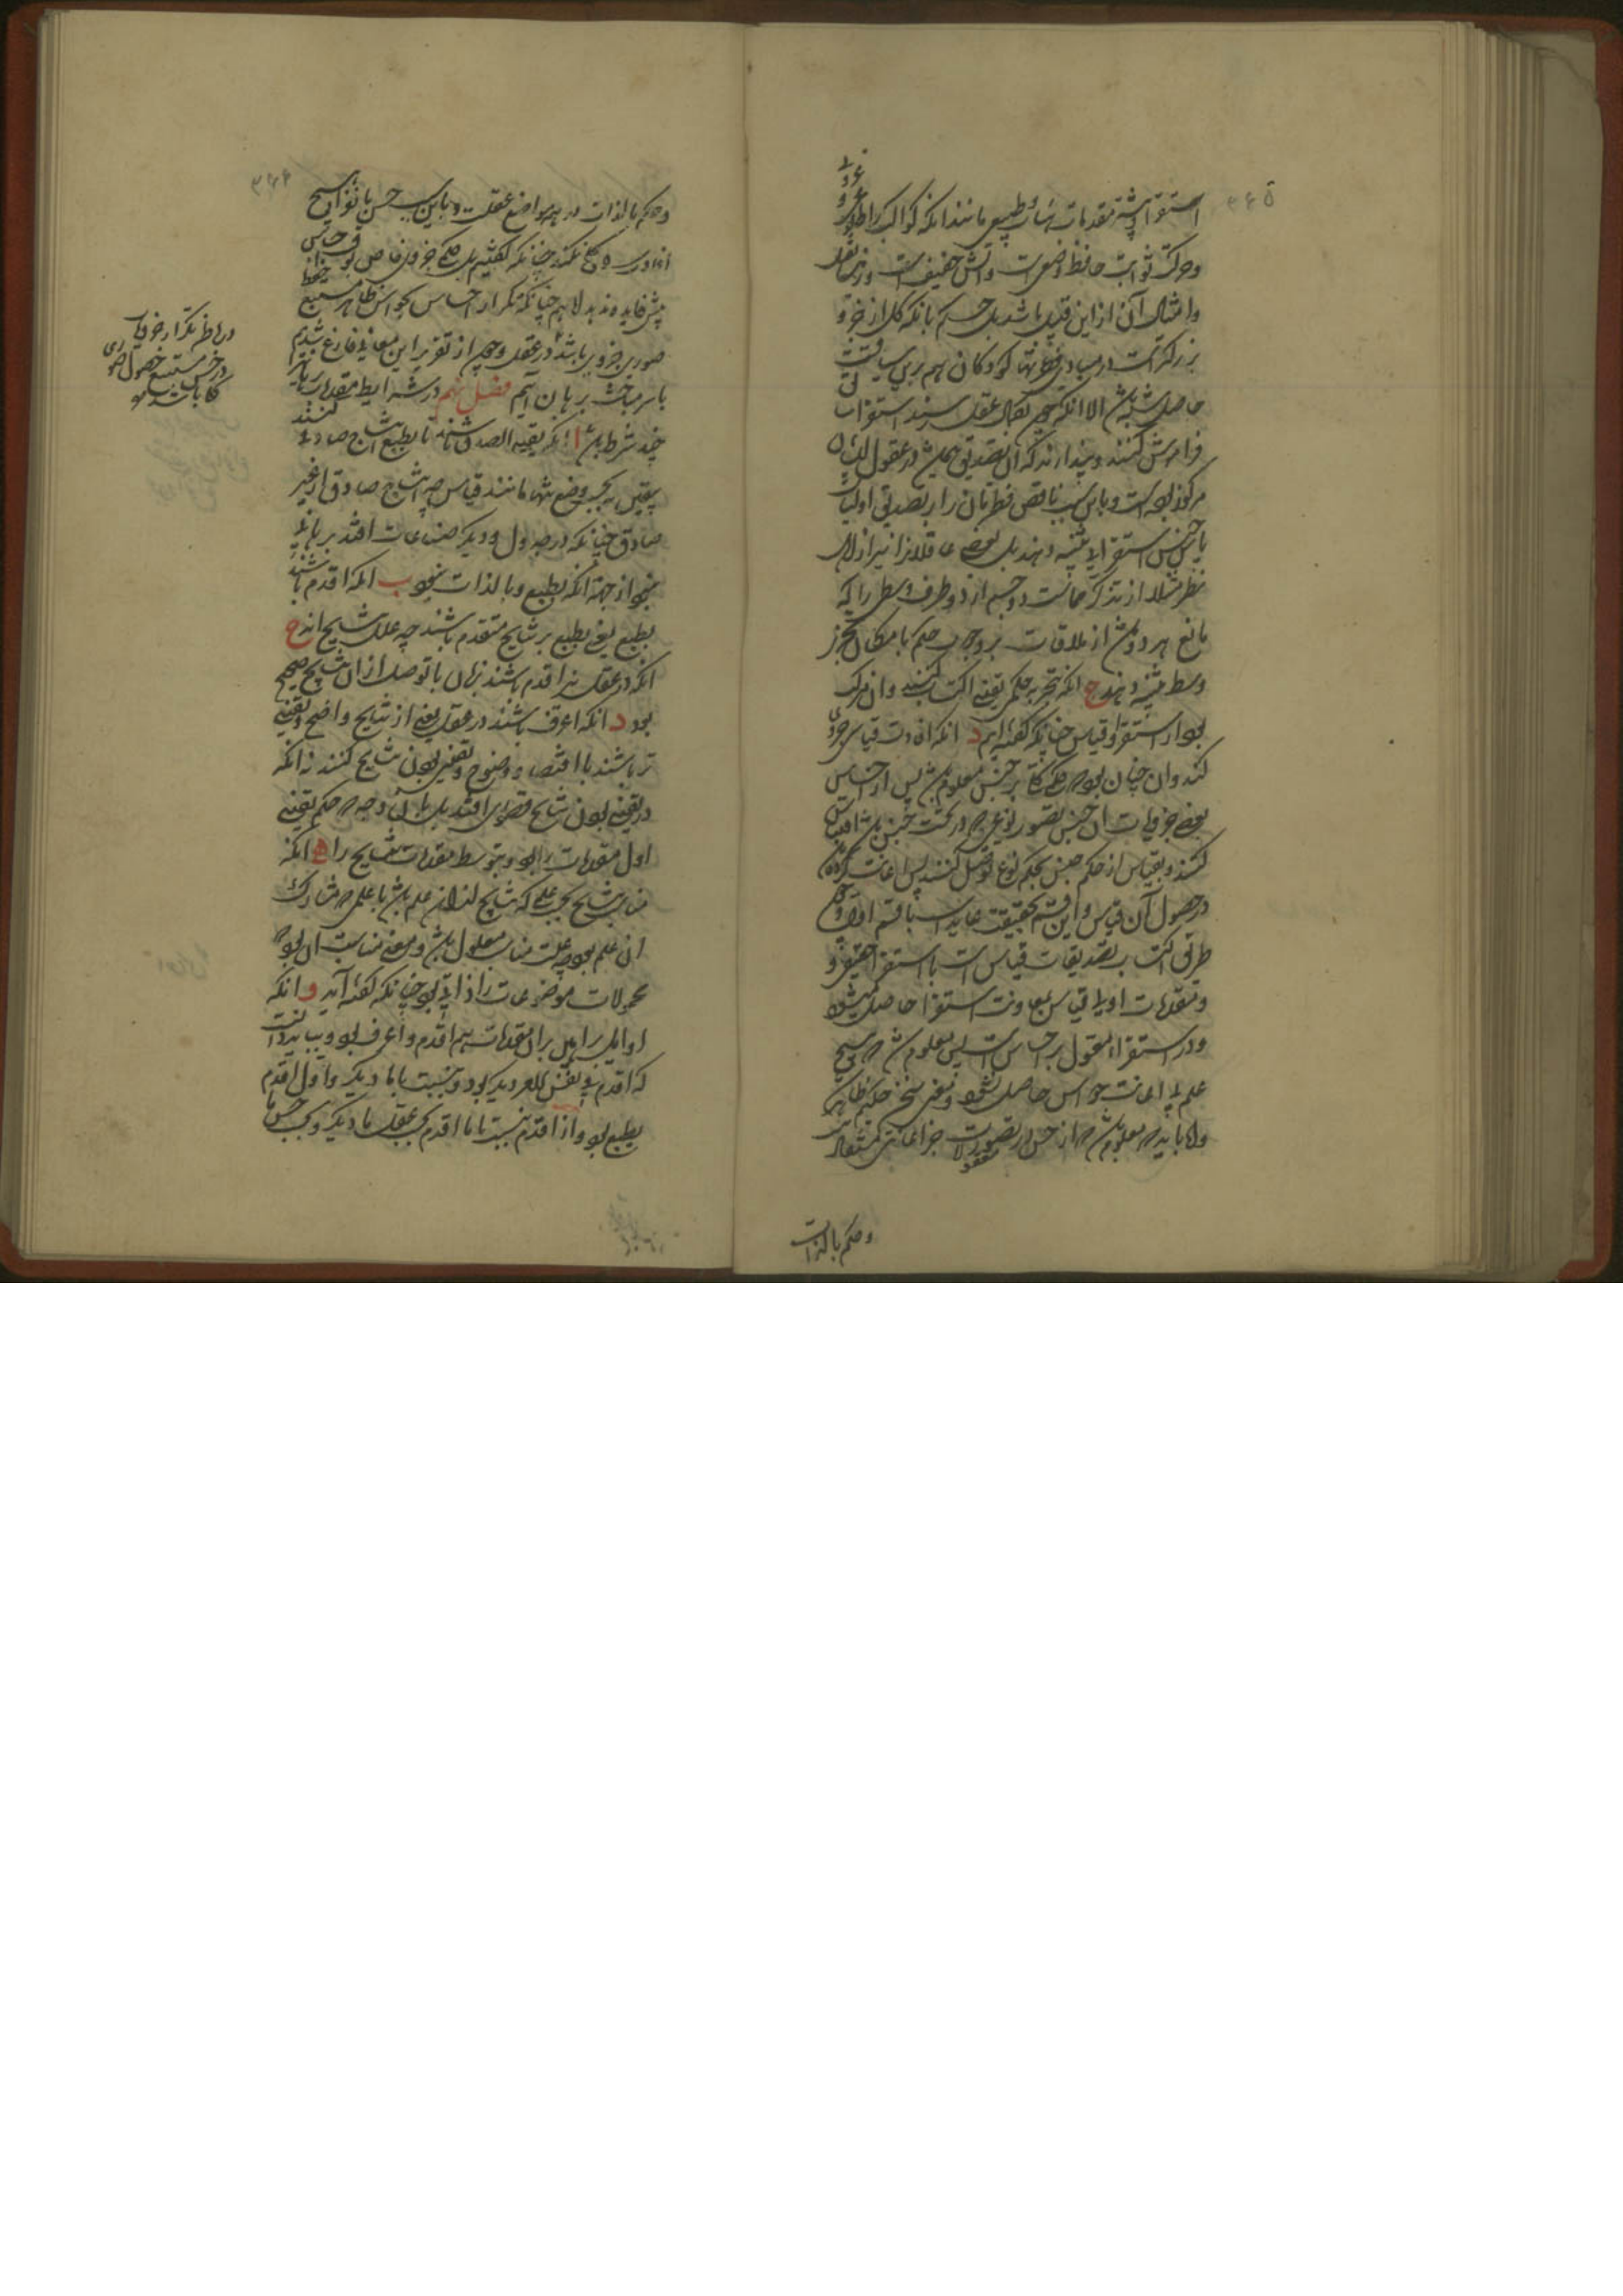 ۳۶۵
استقرا و بیشتر مقدمات طبیعی مانند آنکه کواکب را طلوع و غروب
و حرکت ثوابت حافظ وضعست و آتش خفیف است و زمین ثقیل
و امثال آن از این قبیل باشد بل حکم بآنکه کل از جزو
بزرگترست در مبادی فطرتها کودکان را هم بدین سیاقت
حاصل شده باشد الا آنکه چون بکمال عقل رسند استقرا را
فراموش کنند و پندارند که آن تصدیق همیشه در عقول ایشان
مرکوز بوده است و باین سبب ناقص فطرتان را بر تصدیق اولیات
باین جنس استقرا تنبیه دهند بل بعضی عاقلان را نیز از اهل
نظر مثلا از تذکر ممانعت دو جسم از دو طرف وسطی را که
مانع هر دو باشد از ملاقات بر وجوب حکم بامکان تجزیه
وسط تنبیه دهند ج آنکه تجربه حکمی یقینی اکتساب کنند و آن مرکب
بود از استقرا و قیاس چنانکه گفته‌ایم د آنکه افادت قیاس جزوی
کند و آن چنان بود که حکم کلی بر جنس معلوم باشد پس از احساس
بعضی جزویات آن جنس تصور نوعی که در تحت جنس باشد اقتباس
کنند و بقیاس از حکم جنس بحکم نوع توصل کنند پس حس اعانت کرده
در حصول آن قیاس و این قسم بحقیقت عاید است با قسم اول و
طرق اکتساب تصدیقات قیاس است یا استقرا حقیقی و
و مقدمات اولی قیاس بمعاونت استقرا حاصل میشود
و در استقراء معول بر احساس است پس معلوم شد که هیچ
علم بی اعانت حواس حاصل نشود و معنی سخن حکیم ظاهر گشت
و اما باید که معلوم باشد که از حس در تصورات جز اعانتی
معقولات
و حکم بالذات
۳۶۶
و حکم بالذات در همه مواضع عقلست و باین سبب حس بانفراده هیچ
افادت رای کلی نکند چنانکه گفتیم بل حکم جزوی خاص بوقت احساس
بیش فایده ندهد لا هم چنانکه تکرار احساس بحواس ظاهر مستتبع حفظ
صوری جزوی باشد در عقل و چون از تقریر این معانی فارغ شدیم
با سر مباحث برهان آییم فصل نهم در شرایط مقدمات برهان
چند شرط بود ا آنکه یقینی الصدق باشند تا بطبع انتاج صادق کنند
یقینی نه بحسب وضع تنها مانند قیاس چه انتاج صادق از غیر
صادق چنانکه در جدل و دیگر صناعات افتد برهانی
نبود از جهت آنکه بطبع و بالذات نبود ب آنکه اقدم باشند
بطبع یعنی بطبع بر نتایج متقدم باشند چه علل نتایج‌اند ج
آنکه در عقل نیز اقدم باشند بزمان تا توصل از آن بنتایج صحیح
بود د آنکه اعرف باشند در عقل یعنی از نتایج واضح و یقینی
تر باشند تا اقتضاء وضوح و یقینی بودن نتایج کنند نه آنکه
در یقینی بودن نتایج قصوری افتد بل بآن وجه که حکم یقینی
اول مقدمات را بود و بتوسط مقدمات نتایج را ه آنکه
مناسب نتایج بحسب علمی که نتایج از آن علم باشد یا علمی که مشارک
آن علم بود چه علت مناسب معلول باشد و معنی مناسبت آن بود که
محمولات موضوعات را ذاتی بود چنانکه گفته آید و آنکه
اوایل براهین بر آن مقدمات هم اقدم و اعرف بود و بباید دانست
که اقدم فی نفس الامر دیگر بود و بنسبت باما دیگر و اول اقدم
بطبع بود و از اقدم بنسبت باما اقدم بحسب عقل ما دیگر و بحسب حس ما
در خاطر تکرار جزویات
در حس مستتبع حصول صوری
کلی باشد